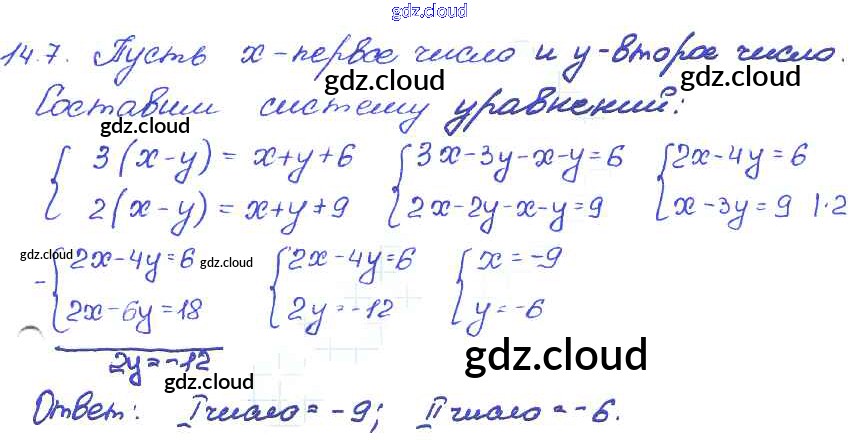 gdz.cloud
14.7. Пусть x - первое число и y - второе число.
gdz.cloud gdz.cloud
Составим систему уравнений:
gdz.cloud
{ 3(x-y) = x+y+6 { 3x-3y-x-y=6 { 2x-4y=6
{ 2(x-y) = x+y+9 { 2x-2y-x-y=9 { x-3y=9 |·2
gdz.cloud gdz.cloud
- { 2x-4y=6 { 2x-4y=6 { x=-9
{ 2x-6y=18 { 2y=-12 { y=-6
2y=-12
gdz.cloud gdz.cloud
Ответ: I число = -9; II число = -6.